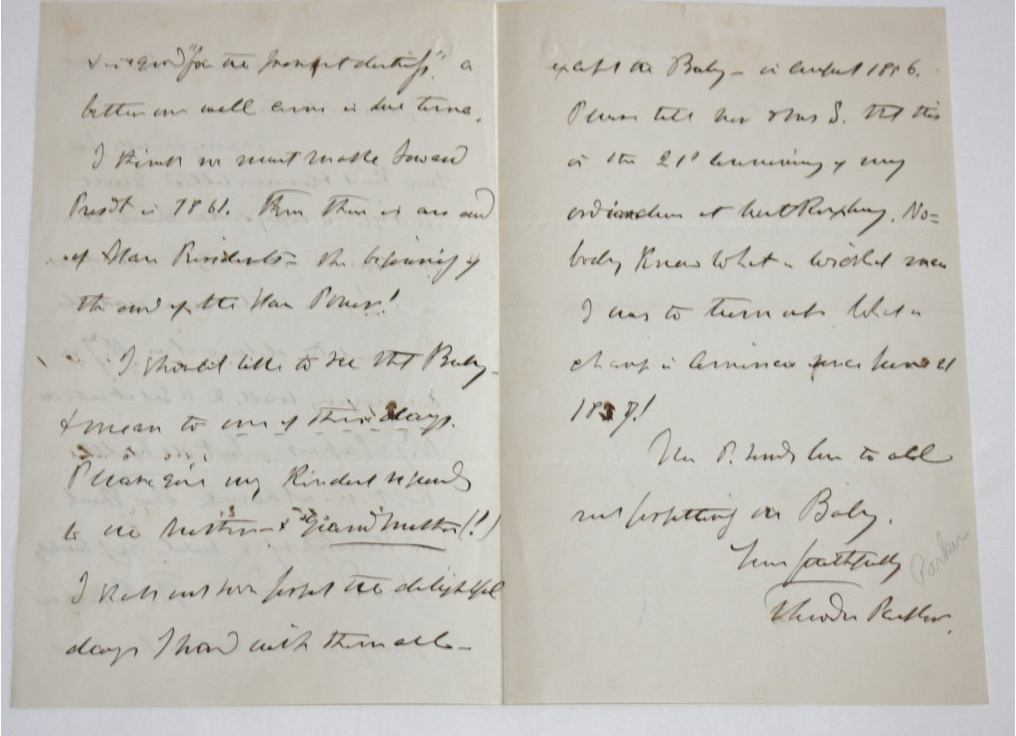 & is good "for the present distress." a
better one will come in due time.
I think we must make Seward
Presdt in 1861. Then there is an end
of Slave Presidents – the beginning of
the end of the Slave Power!
I should like to see that Baby –
& mean to one of these days.
Please give my Kindest regards
to the Mother – & "Grand Mother" (!)
I shall not soon forget the delightful
days I had with them all –
except the Baby – in August 1856.
Please tell her & Mrs S. that this
is the 21st anniversary of my
ordination at West Roxbury. No=
body Knew what a wicked man
I was to turn out. What a
change in America since June 21
1837!
Mrs P. sends love to all
not forgetting the Baby.
Yours faithfully
Theodore Parker.
Parker